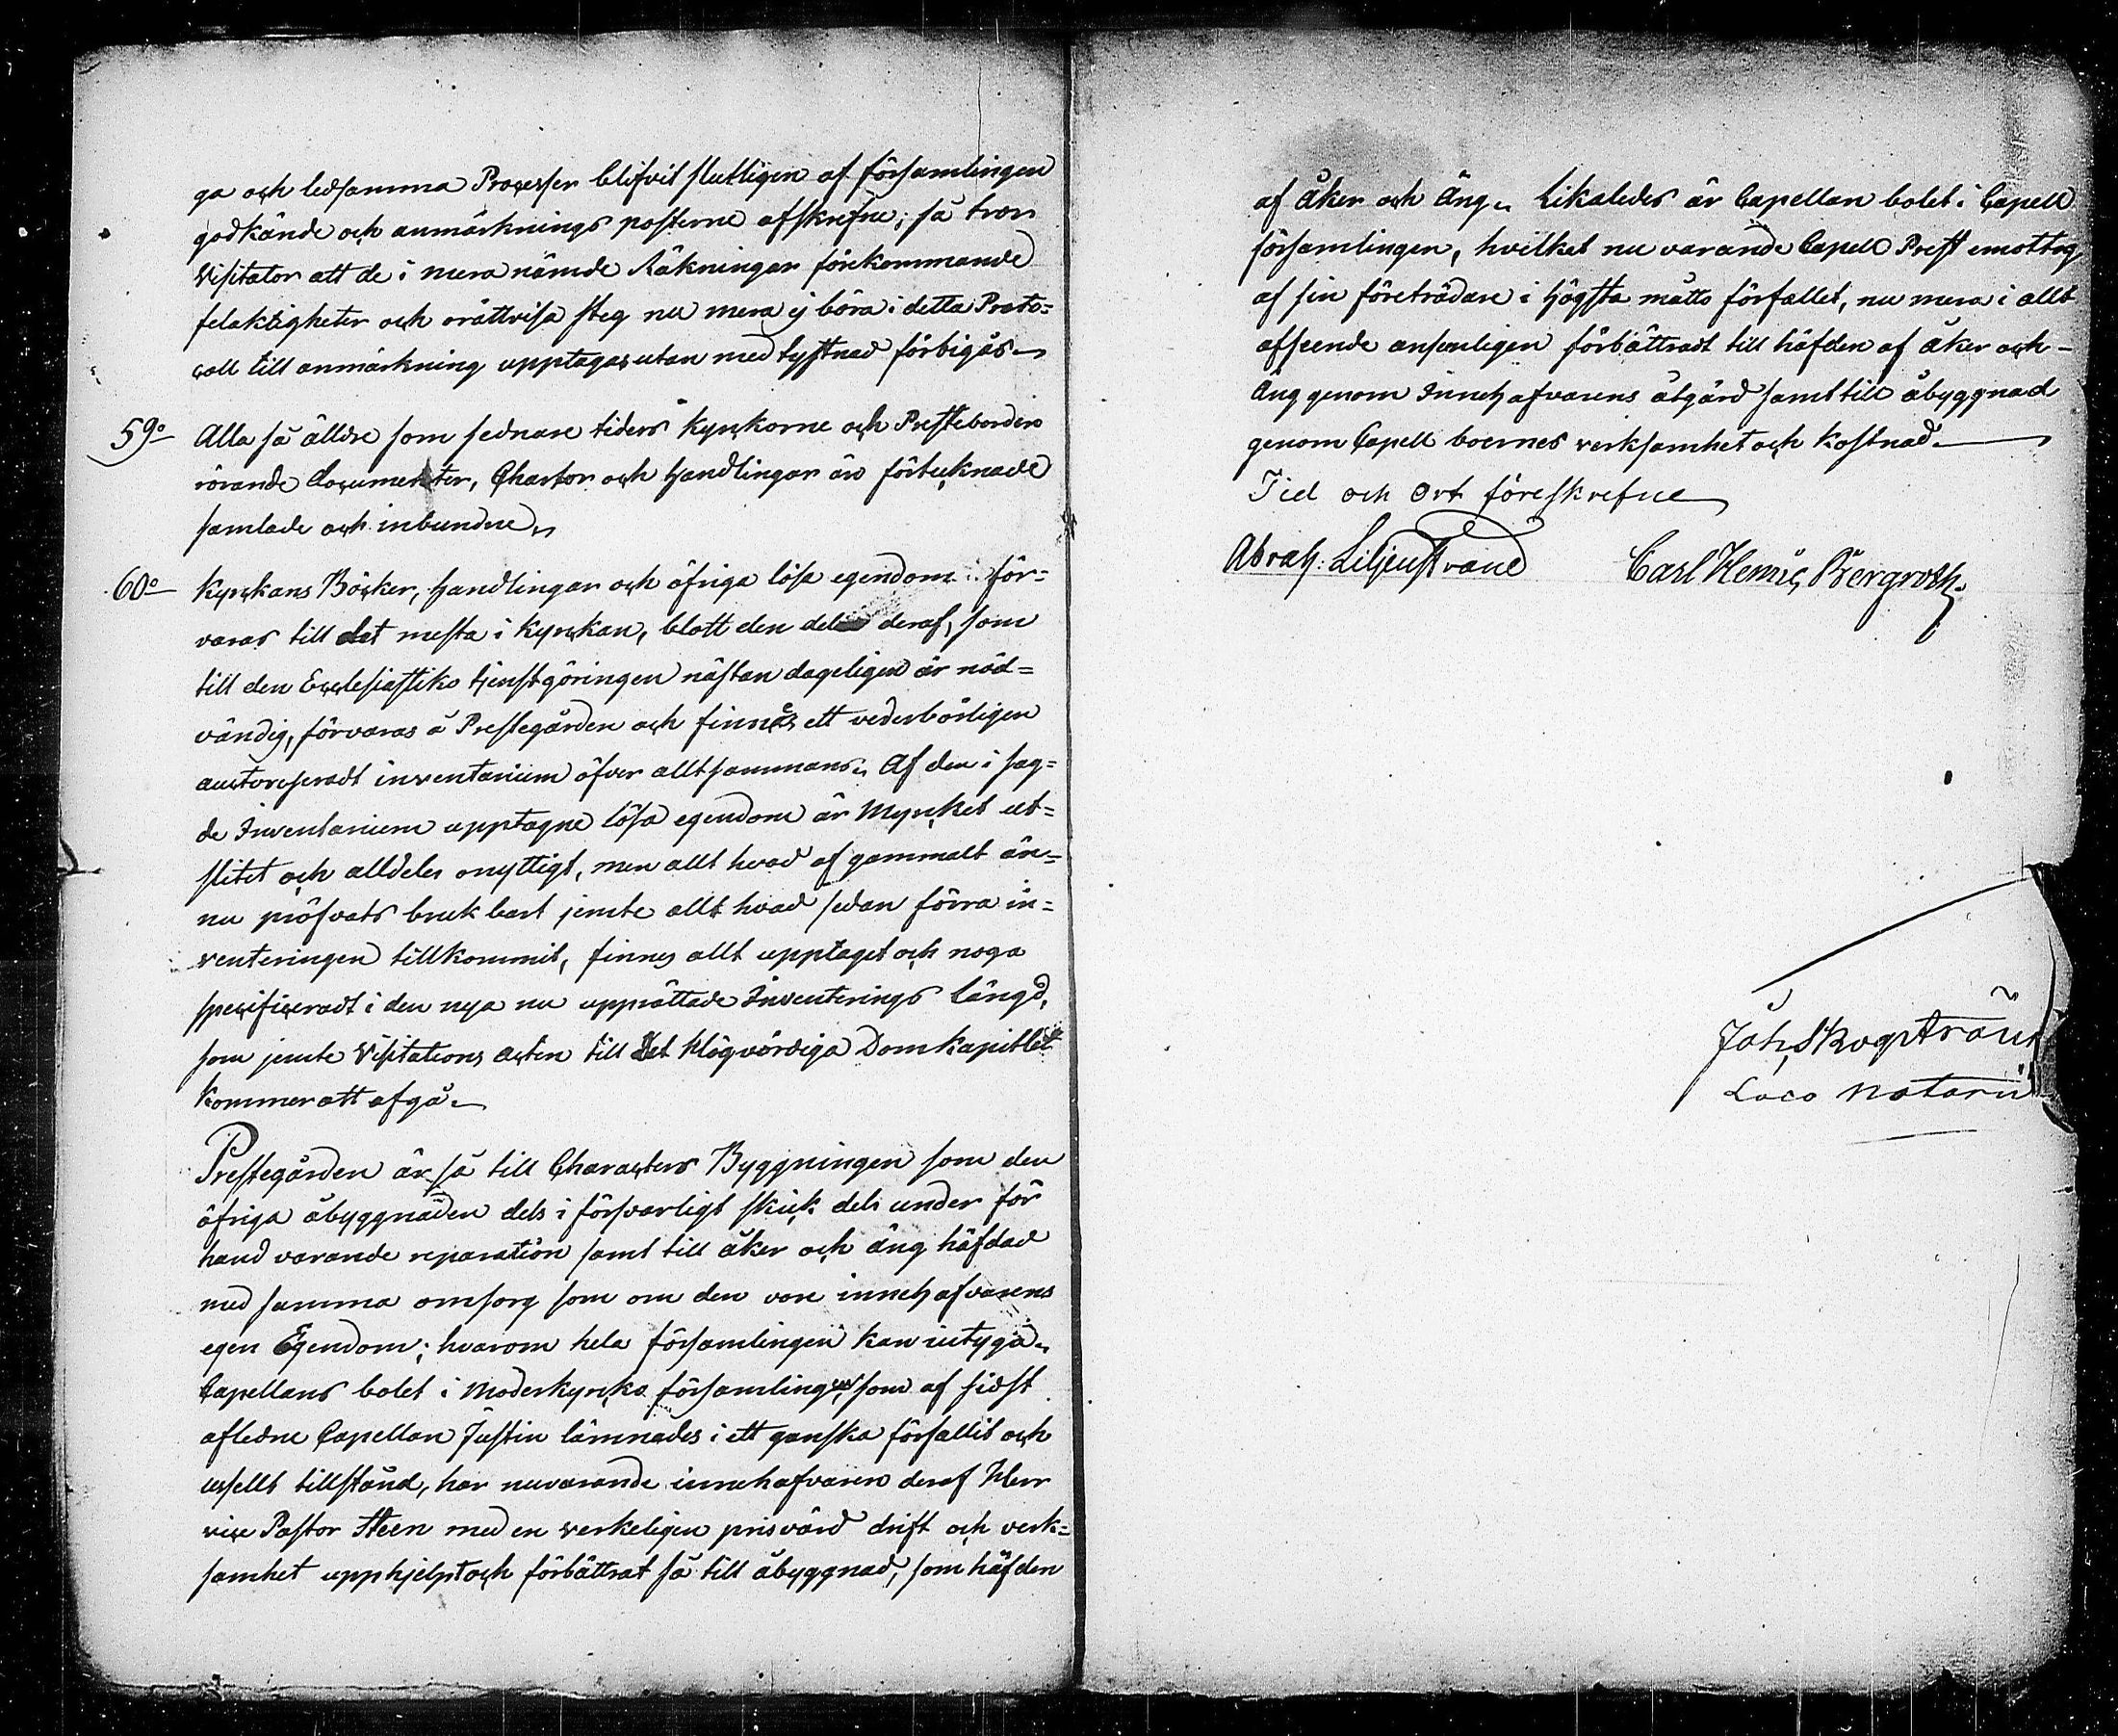 ga och ledsamma Processer blifvit slutligen af församlingen
godkände och anmärknings posterne afskrefne; så tror
Visitator att de i mera nämde Räkningar förekommande
felaktigheter och orättvisa steg nu mera ej böra i detta Proto=
coll till anmärkning upptagas utan med tystnad förbigås.
59o Alla så älldre som sednare tiders Kyrkorne och Prestebordens
rörande documenter, Chartor och Handlingar äro förtecknade
samlade och inbundne.
60o Kyrkans Böcker, Handlingar och öfriga lösa egendom för=
varas till det mesta i Kyrkan, blott den del deraf, som
till den Ecclesiastike tjenstgöringen nästan dageligen är nöd=
vändig, förvaras å Prestegården och finnes ett vederbörligen
auctoriseradt inventarium öfver alltsammans. Af den i sag=
de Inventarium upptagne lösa egendom är Mycket ut=
slitet och alldeles onyttigt, men allt hvad af gammalt än=
nu pröfvats bruk bart jemte allt hvad sedan förra in=
venteringen tillkommit, finnes allt upptaget och noga
specificeradt i den nya nu upprättade Inventerings längd,
som jemte Visitations Acten till Det Högvördiga Domkapitlet
kommer att afgå.
Prestegården är så till Characters Byggningen som den
öfriga åbyggnaden dels i försvarligt skick dels under för
hand varande reparation samt till åker och äng häfdad
med samma omsorg som om den vore innehafvarens
egen Egendom; hvarom hela församlingen kan intyga.
Capellans bolet i Moderkyrko församlingen, som af sidst
afledne Capellan Justin lämnades i ett ganska förfallit och
uselt tillstånd, har nuvarande innehafvaren deraf Herr
vice Pastor Steen med en verkeligen prisvärd drift och verk=
samhet upphjelpt och förbättrat så till åbyggnad, som häfden
af åker och Äng. Likaledes är Capellan bolet i Capell
församlingen, hvilket nu varande Capell Prest emottog
af sin företrädare i högsta måtto förfallet, nu mera i allt
afseende ansenligen förbättradt till häfden af åker och
Äng genom Innehafvarens åtgärd samt till åbyggnad
genom Capell boernes verksamhet och kostnad.
Tid och Ort föreskrefne
Abrah: Liljenstrand Carl Henric Bergroth.
Joh. Skogström
Loco Notarii